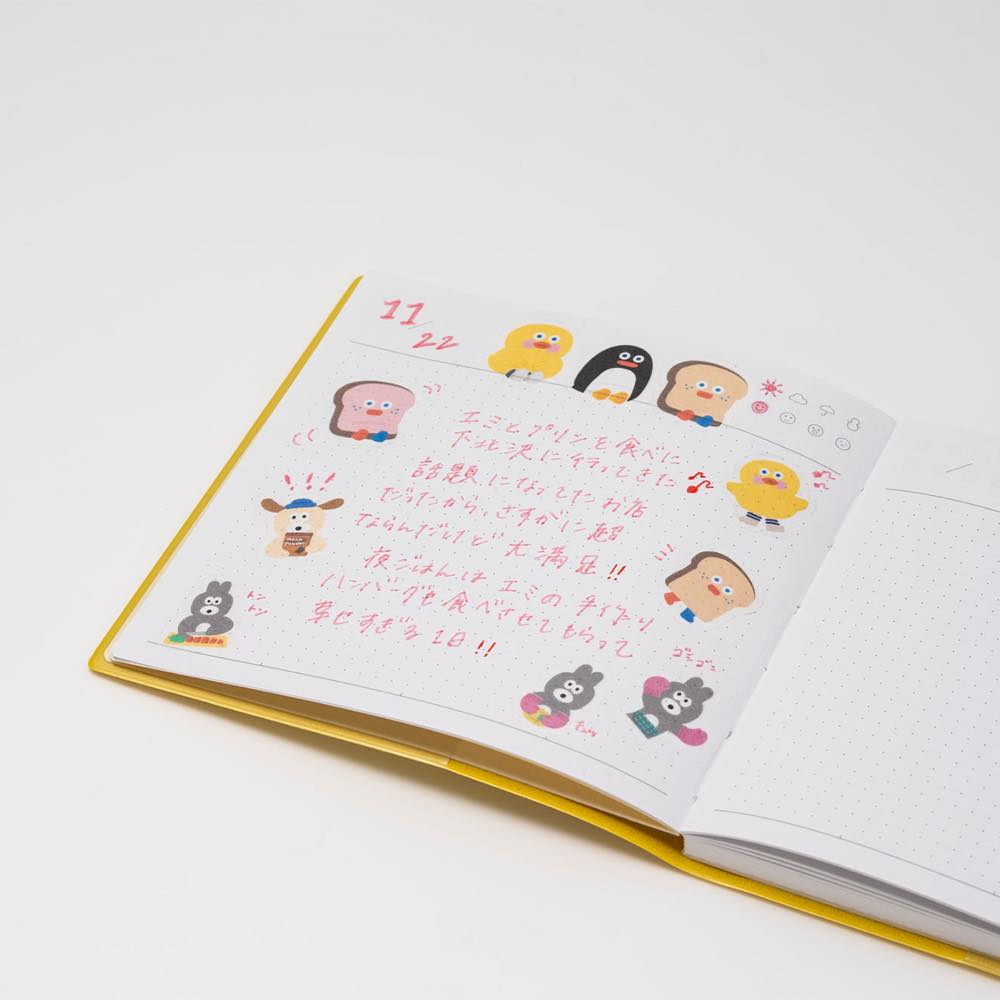 11/22
エミとプリンを食べに
下北沢に行ってきた
話題になってたお店
だったから、さすがに超
ならんだけど大満足!!
夜ごはんは エミの 手作り
ハンバーグを食べさせてもらって
幸せすぎる1日!!
トン
トン
ゴシゴシ